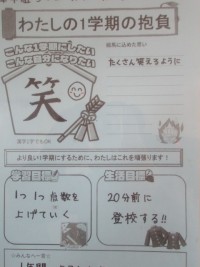 わたしの1学期の抱負
こんな1学期にしたい
こんな自分になりたい
笑
漢字1字でもOK
絵馬に込めた思い
たくさん笑えるように
より良い1学期にするために、わたしはこれを頑張ります!
学習目標
1つ1つ点数を
上げていく
生活目標
20分前に
登校する!!